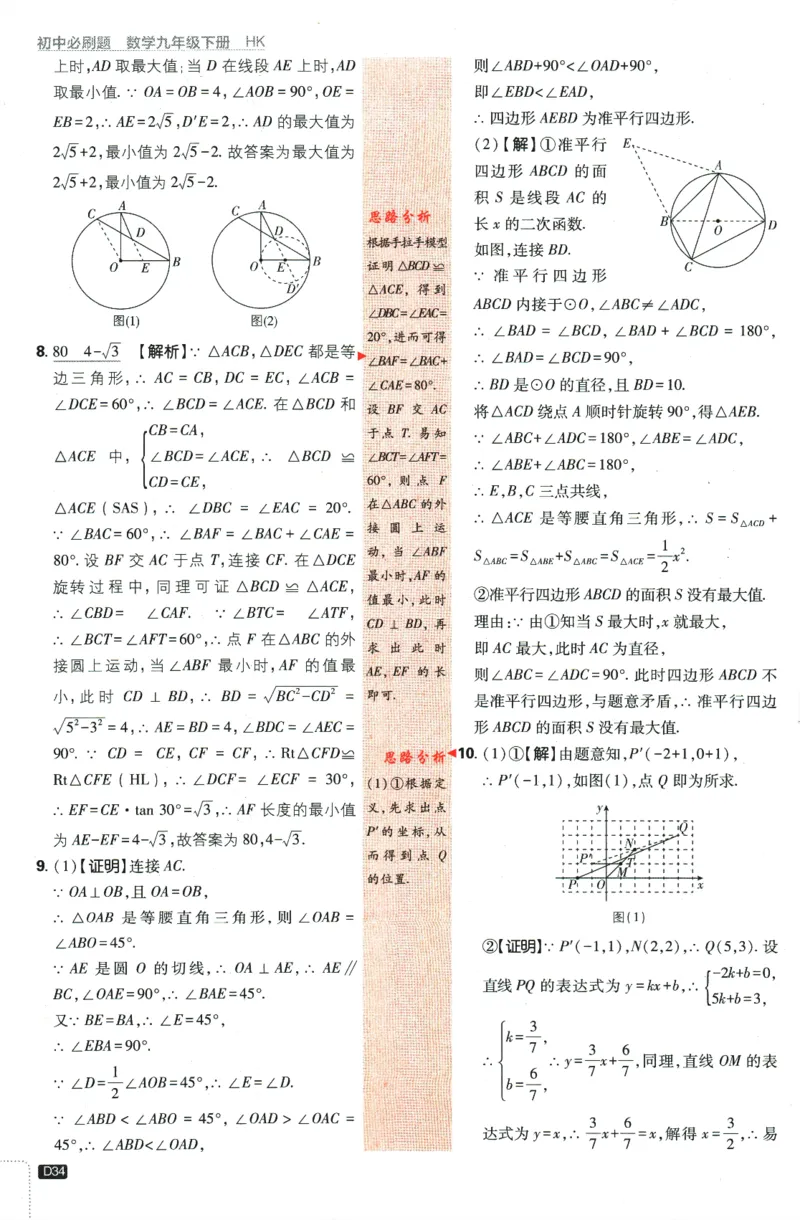 初中必刷题 数学九年级下册 HK
上时,AD 取最大值;当 D 在线段 AE 上时,AD
取最小值. ∵ OA=OB=4,∠AOB=90°,OE=
EB=2,∴ AE=2√5,D′E=2,∴ AD 的最大值为
2√5+2,最小值为 2√5-2. 故答案为最大值为
2√5+2,最小值为 2√5-2.
C A D O E B
图(1)
C A D O E B D′
图(2)
8. 80 4-√3 【解析】∵ △ACB,△DEC 都是等
边三角形,∴ AC = CB, DC = EC, ∠ACB =
∠DCE=60°,∴ ∠BCD=∠ACE. 在△BCD 和
△ACE 中, {CB=CA, ∠BCD=∠ACE, CD=CE, ∴ △BCD ≌
△ACE (SAS), ∴ ∠DBC = ∠EAC = 20°.
∵ ∠BAC=60°,∴ ∠BAF=∠BAC+∠CAE=
80°. 设 BF 交 AC 于点 T,连接 CF. 在△DCE
旋转过程中,同理可证 △BCD ≌ △ACE,
∴ ∠CBD= ∠CAF. ∵ ∠BTC= ∠ATF,
∴ ∠BCT=∠AFT=60°,∴ 点 F 在△ABC 的外
接圆上运动,当 ∠ABF 最小时,AF 的值最
小,此时 CD ⊥ BD,∴ BD = √(BC²-CD²) =
√(5²-3²)=4,∴ AE=BD=4,∠BDC=∠AEC=
90°. ∵ CD = CE, CF = CF, ∴ Rt△CFD≌
Rt△CFE (HL), ∴ ∠DCF= ∠ECF = 30°,
∴ EF=CE·tan 30°=√3,∴ AF 长度的最小值
为 AE-EF=4-√3,故答案为 80,4-√3.
9. (1)【证明】连接 AC.
∵ OA⊥OB,且 OA=OB,
∴ △OAB 是等腰直角三角形,则 ∠OAB=
∠ABO=45°.
∵ AE 是圆 O 的切线,∴ OA⊥AE,∴ AE∥
BC,∠OAE=90°,∴ ∠BAE=45°.
又∵ BE=BA,∴ ∠E=45°,
∴ ∠EBA=90°.
∵ ∠D=1/2∠AOB=45°,∴ ∠E=∠D.
∵ ∠ABD < ∠ABO = 45°, ∠OAD > ∠OAC =
45°,∴ ∠ABD<∠OAD,
D34
思路分析
根据手拉手模型
证明 △BCD≌
△ACE, 得到
∠DBC=∠EAC=
20°,进而可得
∠BAF=∠BAC+
∠CAE=80°.
设 BF 交 AC
于点 T. 易知
∠BCT=∠AFT=
60°, 则点 F
在△ABC 的外
接圆上运
动,当 ∠ABF
最小时,AF 的
值最小,此时
CD⊥BD,再
求出此时
AE,EF 的长
即可.
思路分析
(1)①根据定
义,先求出点
P′的坐标,从
而得到点 Q
的位置.
则∠ABD+90°<∠OAD+90°,
即∠EBD<∠EAD,
∴ 四边形 AEBD 为准平行四边形.
(2)【解】①准平行
四边形 ABCD 的面
积 S 是线段 AC 的
长 x 的二次函数.
如图,连接 BD.
E A B O D C
∵ 准平行四边形
ABCD 内接于⊙O,∠ABC≠∠ADC,
∴ ∠BAD = ∠BCD, ∠BAD + ∠BCD = 180°,
∴ ∠BAD=∠BCD=90°,
∴ BD 是⊙O 的直径,且 BD=10.
将△ACD 绕点 A 顺时针旋转 90°,得△AEB.
∵ ∠ABC+∠ADC=180°,∠ABE=∠ADC,
∴ ∠ABE+∠ABC=180°,
∴ E,B,C 三点共线,
∴ △ACE 是等腰直角三角形,∴ S=S△ACD+
S△ABC=S△ABE+S△ABC=S△ACE=1/2x².
②准平行四边形 ABCD 的面积 S 没有最大值.
理由:∵ 由①知当 S 最大时,x 就最大,
即 AC 最大,此时 AC 为直径,
则∠ABC=∠ADC=90°. 此时四边形 ABCD 不
是准平行四边形,与题意矛盾,∴ 准平行四边
形 ABCD 的面积 S 没有最大值.
10. (1)①【解】由题意知,P′(-2+1,0+1),
∴ P′(-1,1),如图(1),点 Q 即为所求.
y Q N P′ T M P O x
图(1)
②【证明】∵ P′(-1,1),N(2,2),∴ Q(5,3). 设
直线 PQ 的表达式为 y=kx+b,∴ {-2k+b=0, 5k+b=3,
∴ {k=3/7, b=6/7, ∴ y=3/7x+6/7,同理,直线 OM 的表
达式为 y=x,∴ 3/7x+6/7=x,解得 x=3/2,∴ 易